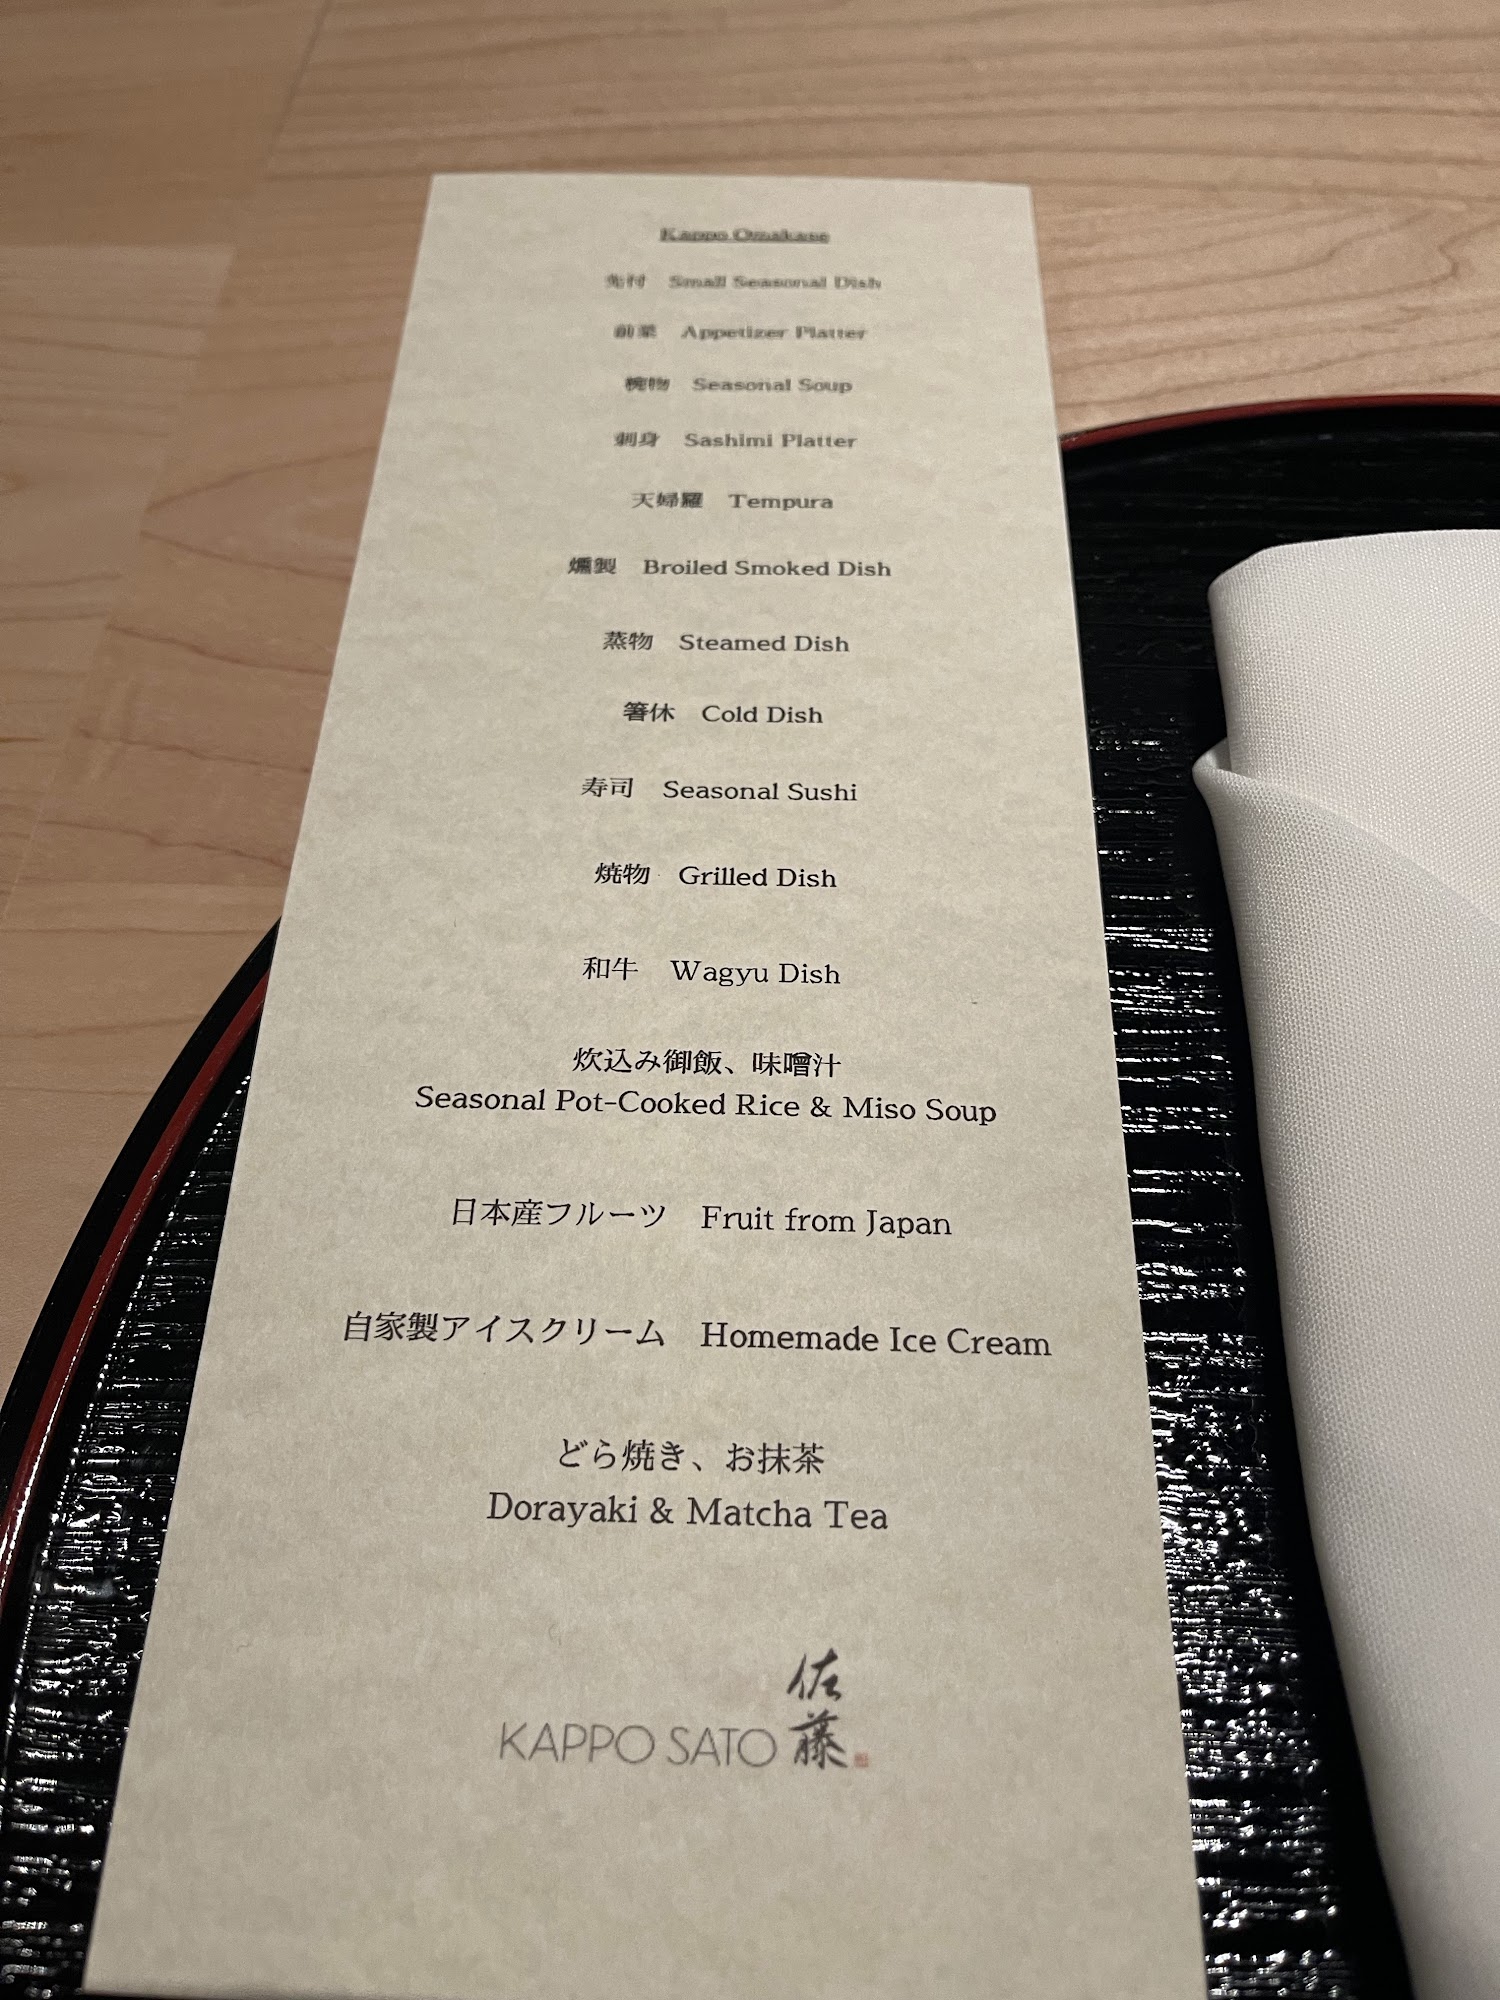 Kappo Omakase
先付 Small Seasonal Dish
前菜 Appetizer Platter
椀物 Seasonal Soup
刺身 Sashimi Platter
天婦羅 Tempura
燻製 Broiled Smoked Dish
蒸物 Steamed Dish
箸休 Cold Dish
寿司 Seasonal Sushi
焼物 Grilled Dish
和牛 Wagyu Dish
炊込み御飯、味噌汁
Seasonal Pot-Cooked Rice & Miso Soup
日本産フルーツ Fruit from Japan
自家製アイスクリーム Homemade Ice Cream
どら焼き、お抹茶
Dorayaki & Matcha Tea
KAPPO SATO 佐藤